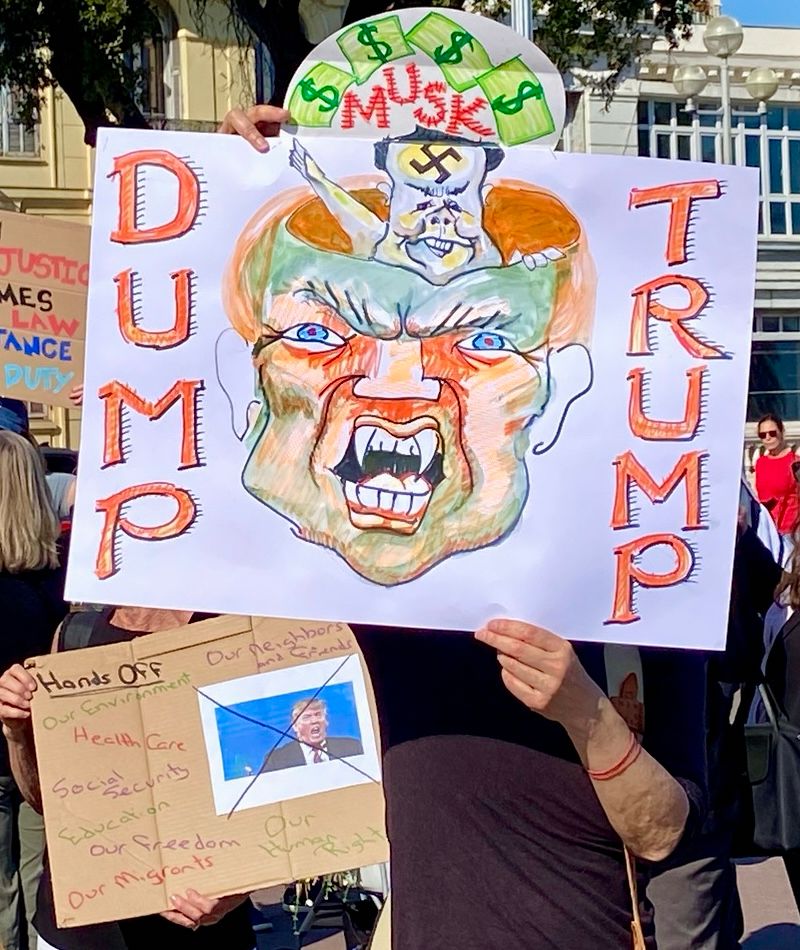 $ $ $ $
MUSK
DUMP
TRUMP
JUSTIC
MES
LAW
TANCE
DUTY
Hands Off
Our Neighbors
and Friends
Our Environment
Health Care
Social
Security
Education
Our Freedom
Our Migrants
Our
Human
Right